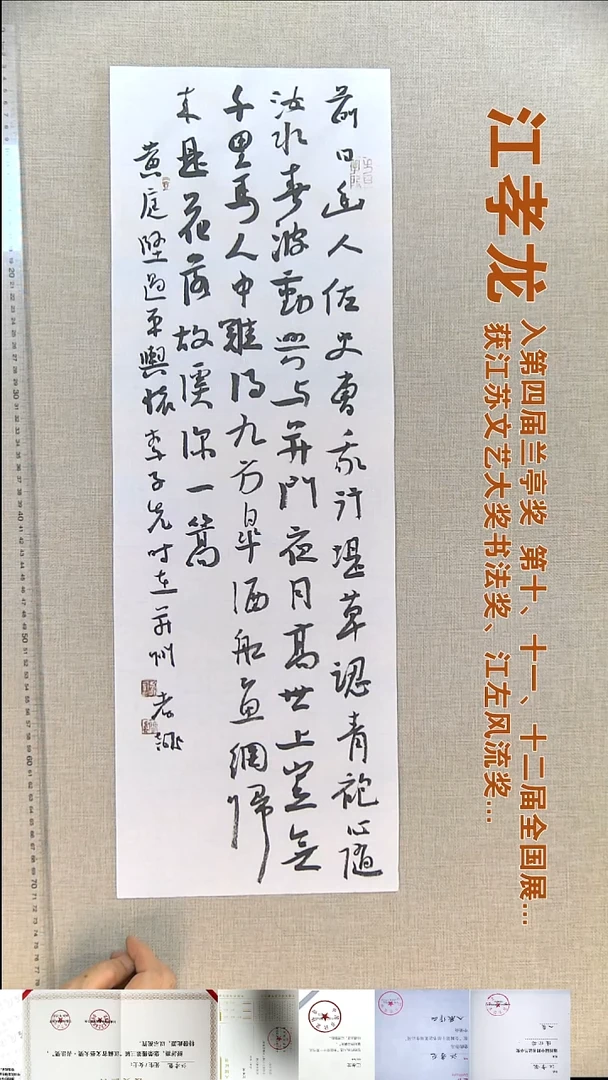 前日幽人佐吏曹我行堤草認青袍心随
汝水春波動興与并門夜月高世上豈無
千里馬人中難得九方皋酒船魚網帰
来是花落故溪深一篙
黄庭堅過平輿懷李子先时在并州 孝龍
江孝龙
入第四届兰亭奖 第十、十一、十二届全国展...
获江苏文艺大奖书法奖、江左风流奖...